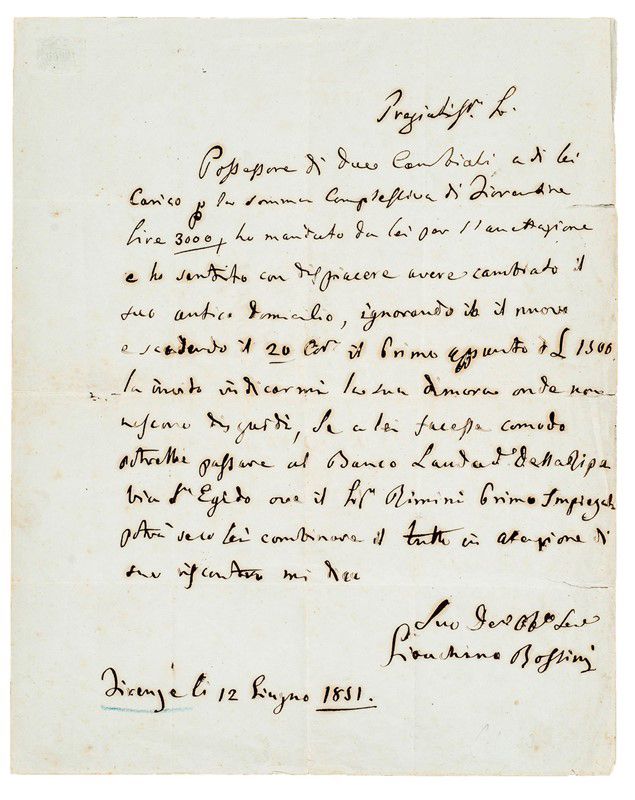 Pregiatis.º S.
Possessore di due Cambiali a di lei
Carico p la somma Complessiva di Fiorentine
lire 3000, ho mandato da lei per l'accettazione
e ho sentito con dispiacere avere cambiato il
suo antico domicilio, ignorando io il nuovo
e scadendo il 20 Cor.e il primo appunto di £ 1500
la invito indicarmi la sua dimora onde non
nascano disguidi, Se a lei facesse comodo
potrebbe passare al Banco Laudad.º Della Ripa
via S.t Egido ove il Sig.r Rimini primo Impiegato
potrà seco lei combinare il tutto in atenzione di
suo riscontro mi dico
Suo Dev.º Obb.º Serv.e
Gioachino Rossini
Firenze li 12 Giugno 1851.